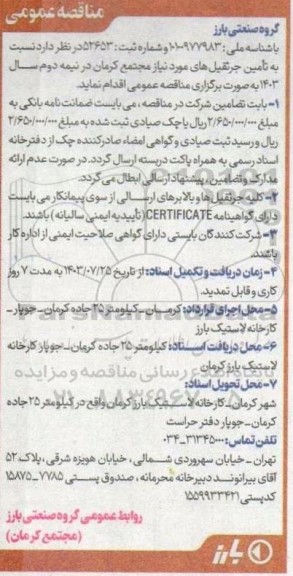 مناقصه عمومی
گروه صنعتی بارز
با شناسه ملی : ۱۰۱۰۰۹۷۷۹۸۳ و شماره ثبت : ۵۲۶۵۳ در نظر دارد نسبت
به تأمین جرثقیل های مورد نیاز مجتمع کرمان در نیمه دوم سال
۱۴۰۳ به صورت برگزاری مناقصه عمومی اقدام نماید.
۱- بابت تضامین شرکت در مناقصه ، می بایست ضمانت نامه بانکی به
مبلغ ۲/۶۵۰/۰۰۰/۰۰۰ ریال یا چک صیادی ثبت شده به مبلغ ۲/۶۵۰/۰۰۰/۰۰۰
ریال و رسید ثبت صیادی و گواهی امضاء صادرکننده چک از دفترخانه
اسناد رسمی به همراه پاکت دربسته ارسال گردد. در صورت عدم ارائه
مدارک و تضامین ، پیشنهاد ارسالی ابطال می گردد.
۲- کلیه جرثقیل ها و بالابرهای ارسالی از سوی پیمانکار می بایست
دارای گواهینامه CERTIFICATE (تأییدیه ایمنی سالیانه ) باشند.
۳- شرکت کنندگان بایستی دارای گواهی صلاحیت ایمنی از اداره کار
باشند.
۴- زمان دریافت و تکمیل اسناد: از تاریخ ۱۴۰۳/۰۷/۲۵ به مدت ۷ روز
کاری و قابل تمدید.
۵- محل اجرای قرارداد: کرمان - کیلومتر ۲۵ جاده کرمان - جوپار -
کارخانه لاستیک بارز
۶- محل دریافت اسناد: کیلومتر ۲۵ جاده کرمان - جوپار کارخانه
لاستیک بارز کرمان
۷- محل تحویل اسناد:
شهر کرمان - کارخانه لاستیک بارز کرمان واقع در کیلومتر ۲۵ جاده
کرمان - جوپار دفتر حراست
تلفن تماس: ۳۱۳۴۵۰۰۰-۰۳۴
تهران - خیابان سهروردی شمالی ، خیابان هویزه شرقی ، پلاک ۵۲
آقای بیرانوند دبیرخانه محرمانه ، صندوق پستی ۷۷۸۵-۱۵۸۷۵
کدپستی ۱۵۵۹۹۳۳۴۲۱
روابط عمومی گروه صنعتی بارز
(مجتمع کرمان)
بارز